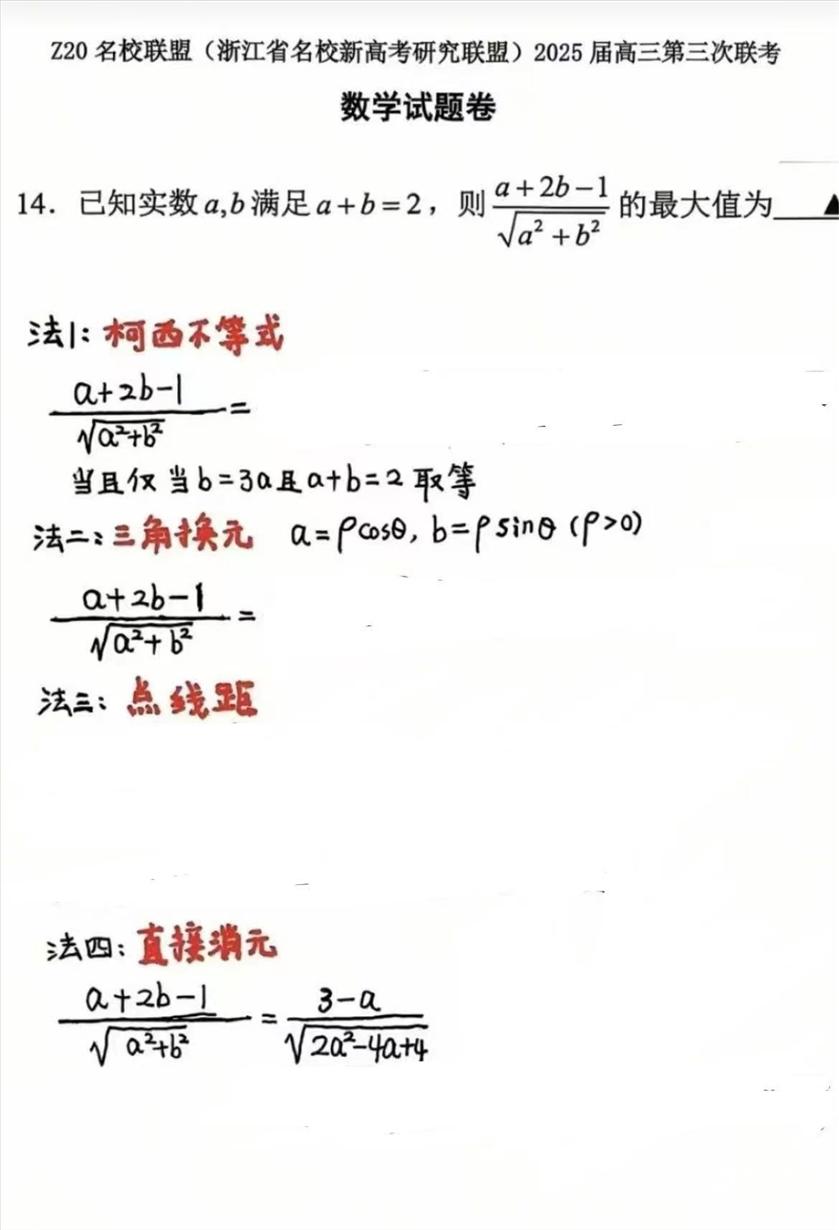 Z20 名校联盟（浙江省名校新高考研究联盟）2025 届高三第三次联考
数学试题卷
14. 已知实数 a,b 满足 a+b=2，则 \frac{a+2b-1}{\sqrt{a^2+b^2}} 的最大值为____▲
法1: 柯西不等式
\frac{a+2b-1}{\sqrt{a^2+b^2}} =
当且仅当 b=3a 且 a+b=2 取等
法二: 三角换元 a=ρcosθ, b=ρsinθ (ρ>0)
\frac{a+2b-1}{\sqrt{a^2+b^2}} =
法三: 点线距
法四: 直接消元
\frac{a+2b-1}{\sqrt{a^2+b^2}} = \frac{3-a}{\sqrt{2a^2-4a+4}}